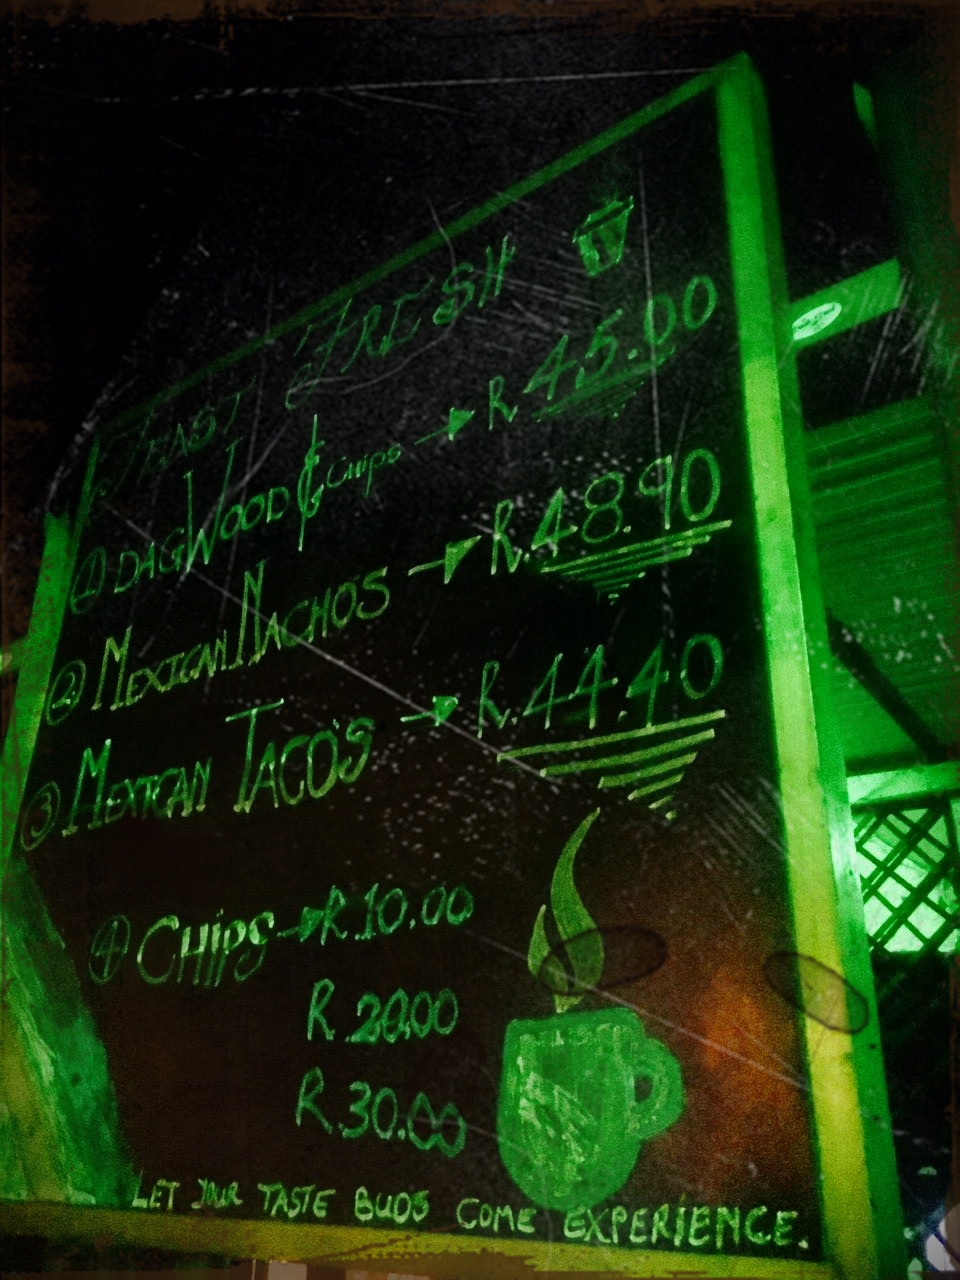 FEAST FRESH
① DAGWOOD & Chips → R 45.00
② MEXICAN NACHOS → R.48.90
③ MEXICAN TACO'S → R.44.40
④ CHIPS → R.10.00
R.20.00
R.30.00
LET YOUR TASTE BUDS COME EXPERIENCE.